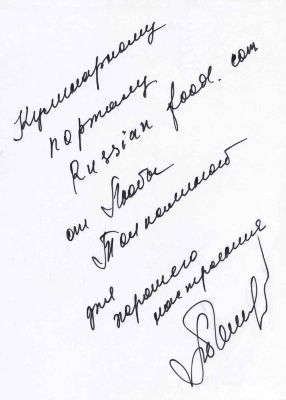 Кулинарному
порталу
Russian food.com
от Любы
для
хорошего
настроения